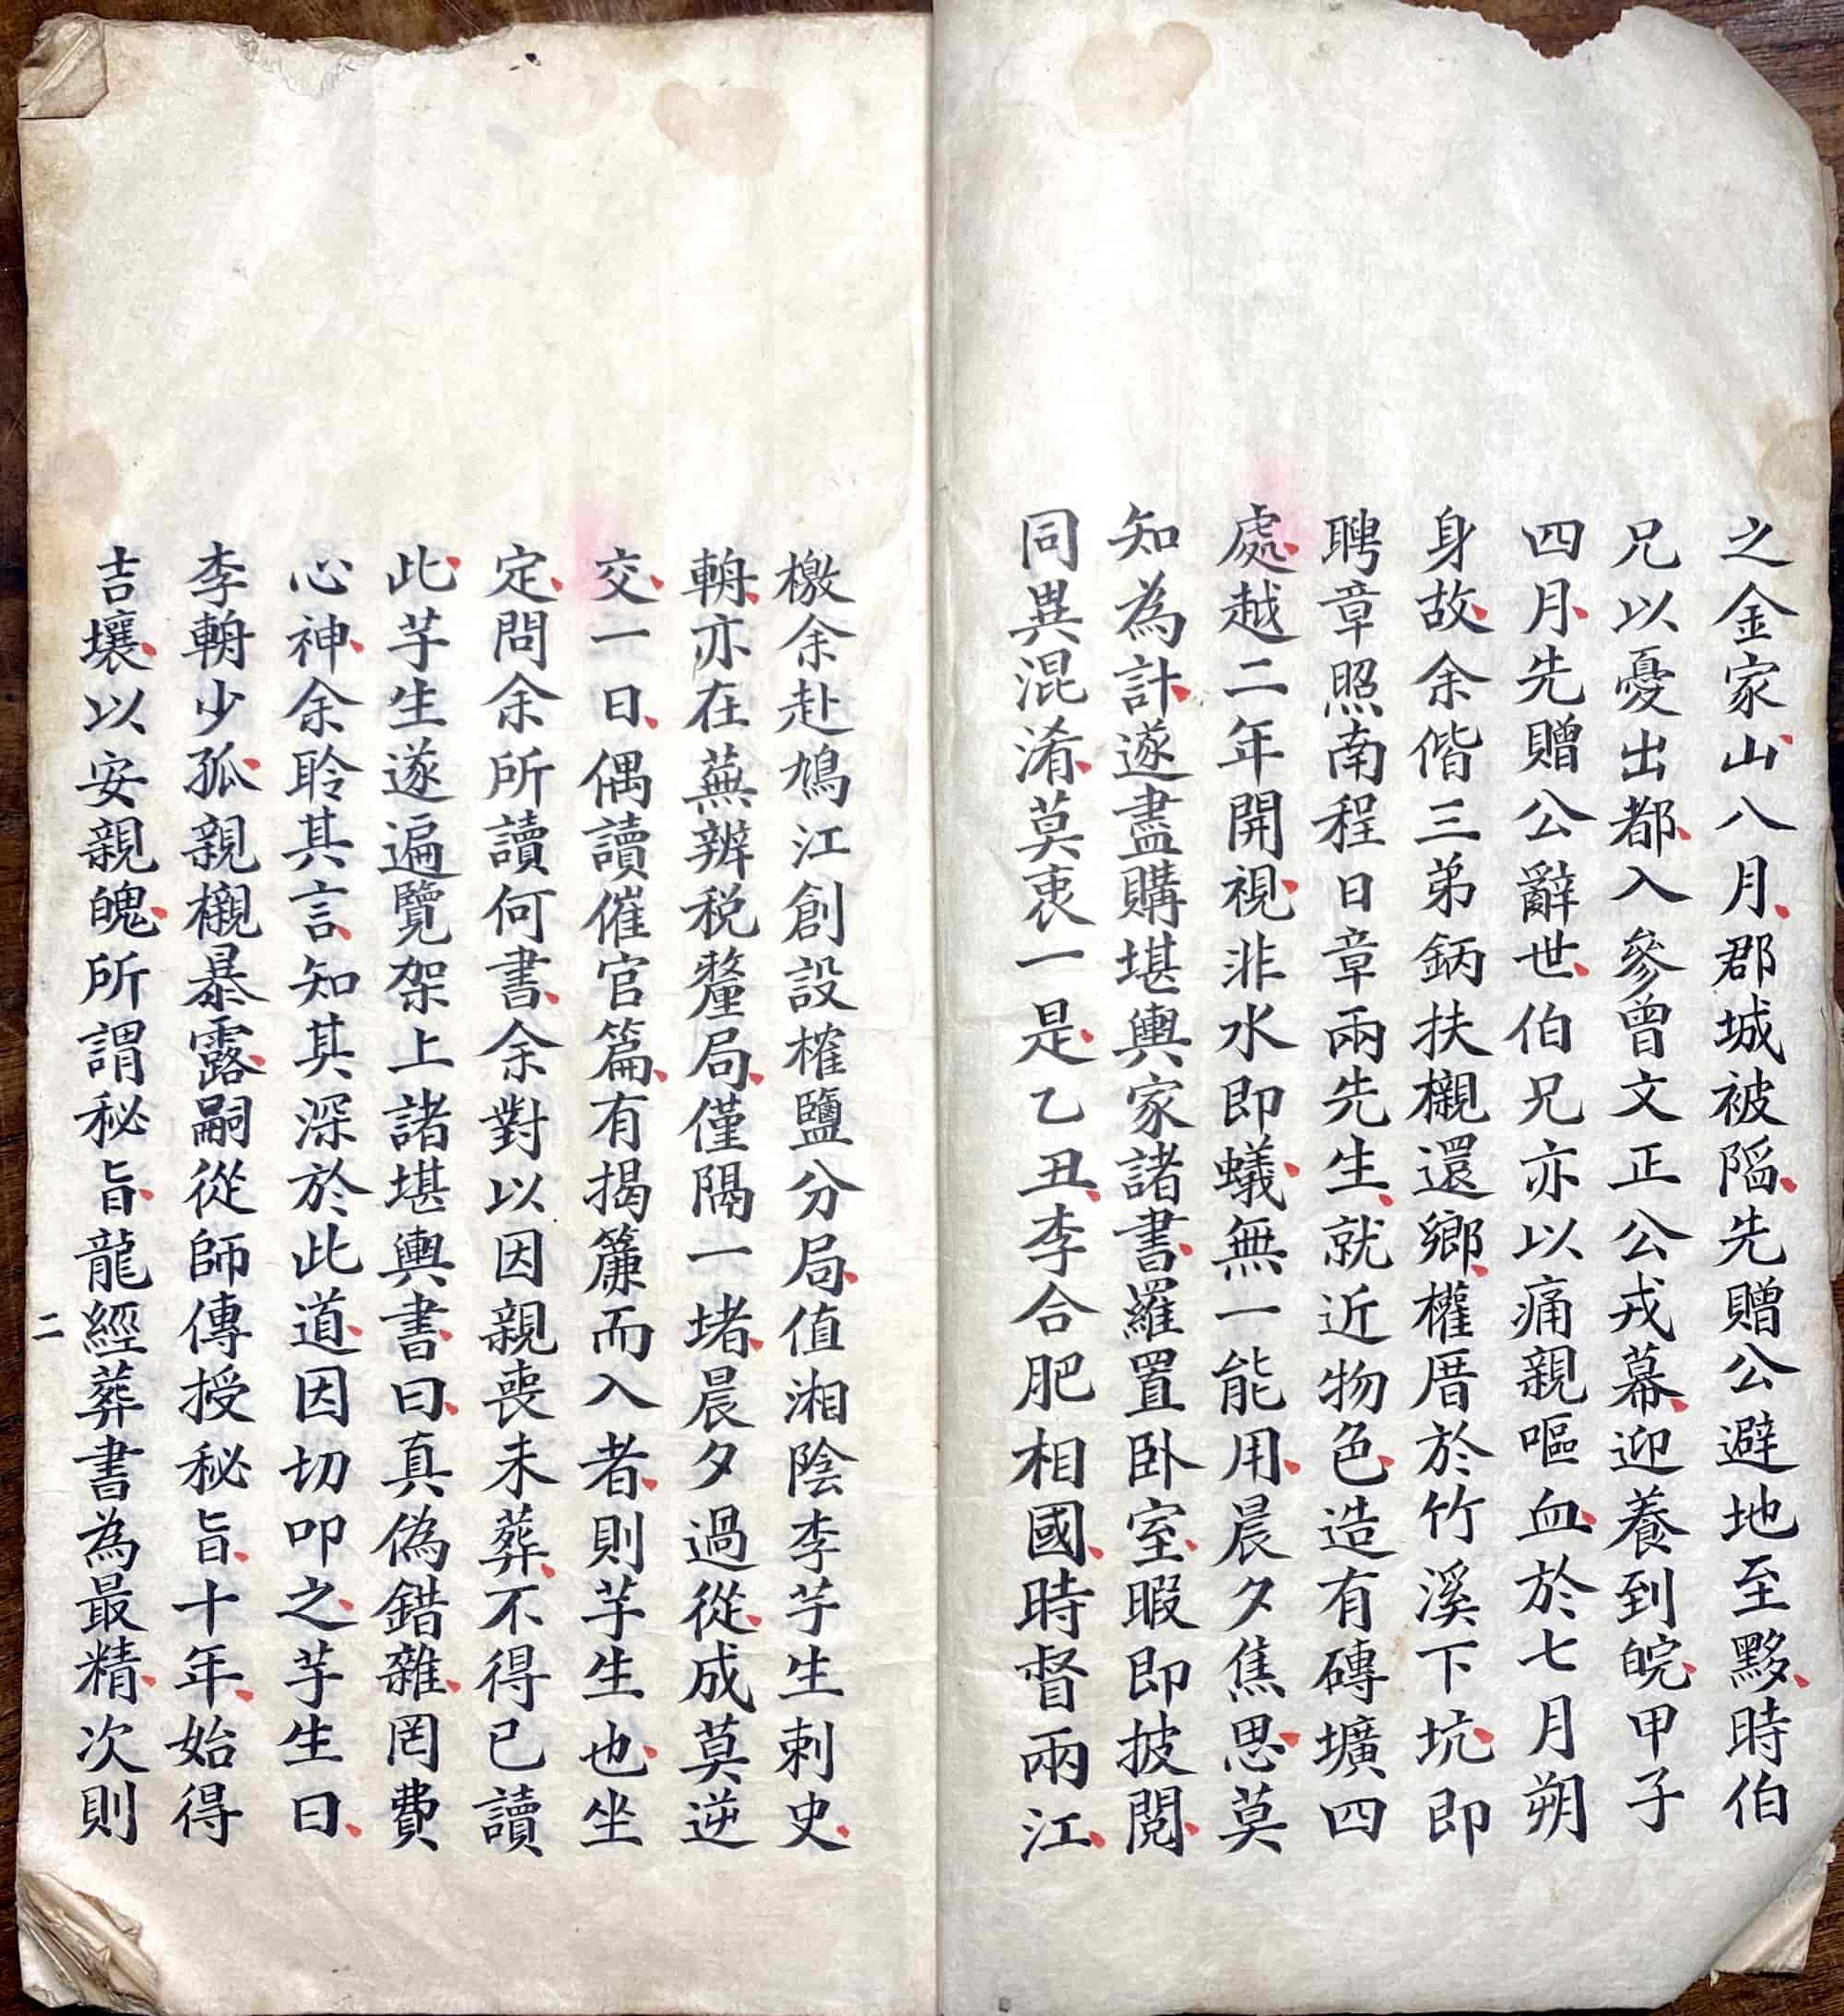 之金家山八月郡城被陷先贈公避地至黟時伯
兄以憂出都入參曾文正公戎幕迎養到皖甲子
四月先贈公辭世伯兄亦以痛親嘔血於七月朔
身故余偕三弟鈵扶櫬還鄉權厝於竹溪下坑即
聘章照南程日章兩先生就近物色造有磚壙四
處越二年開視非水即蟻無一能用晨夕焦思莫
知為計遂盡購堪輿家諸書羅置卧室暇即披閱
同異混淆莫衷一是乙丑李合肥相國時督兩江
檄余赴鳩江創設榷鹽分局值湘陰李芋生刺史
輈亦在蕪辦税釐局僅隔一堵晨夕過從成莫逆
交一日偶讀催官篇有揭簾而入者則芋生也坐
定問余所讀何書余對以因親喪未葬不得已讀
此芋生遂遍覽架上諸堪輿書曰真偽錯雜罔費
心神余聆其言知其深於此道因切叩之芋生曰
李輈少孤親櫬暴露嗣從師傳授秘旨十年始得
吉壤以安親魄所謂秘旨龍經葬書為最精次則
二